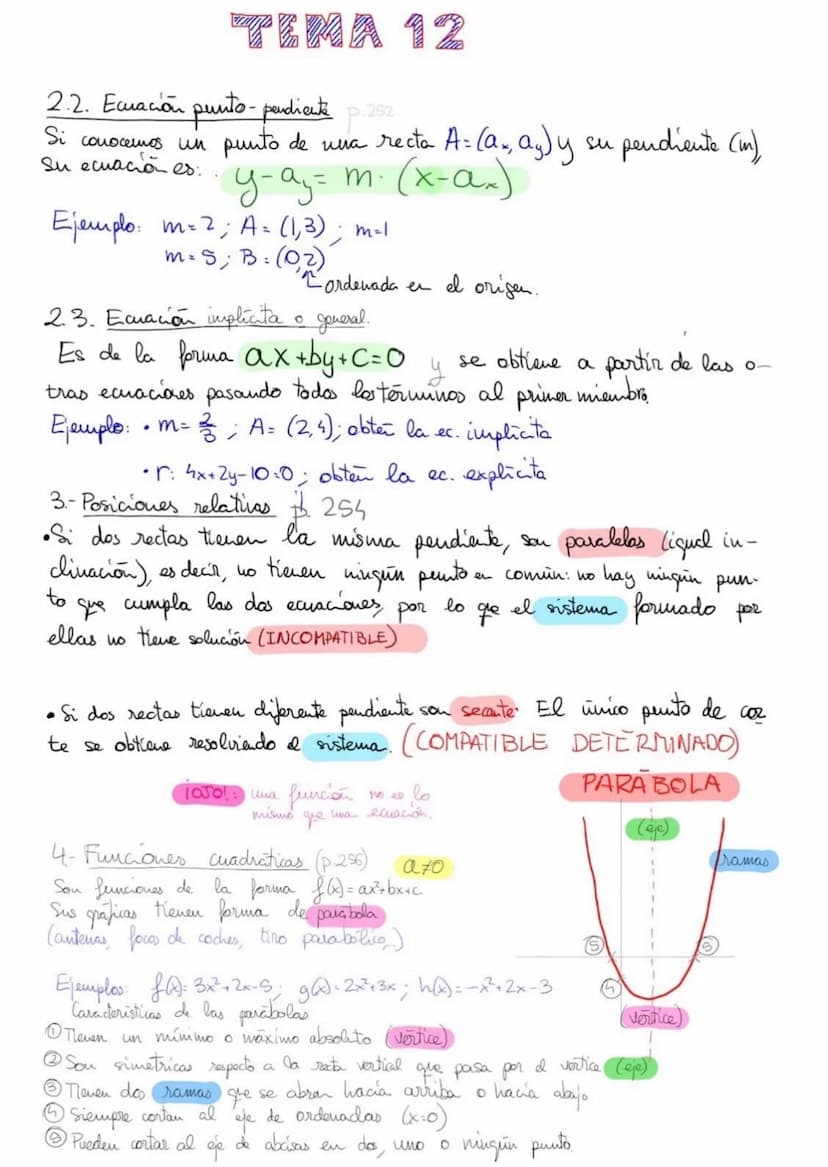 TEMA 12
2.2. Ecuación punto-pendiente p.252
Si conocemos un punto de una recta A=(aₓ, aᵧ) y su pendiente (m),
su ecuación es: y-aᵧ= m· (x-aₓ)
Ejemplo: m=2; A= (1,3) ; m=1
m=5; B=(0,2)
ordenada en el origen.
2.3. Ecuación implícita o general.
Es de la forma ax+by+c=0 y se obtiene a partir de las o-
tras ecuaciones pasando todos los términos al primer miembro.
Ejemplo: • m= 2/3 ; A= (2,4); obtén la ec. implícita
• r: 4x+2y-10=0 ; obtén la ec. explícita
3.- Posiciones relativas p. 254
• Si dos rectas tienen la misma pendiente, son paralelas (igual in-
clinación), es decir, no tienen ningún punto en común: no hay ningún pun-
to que cumpla las dos ecuaciones, por lo que el sistema formado por
ellas no tiene solución (INCOMPATIBLE)
• Si dos rectas tienen diferente pendiente son secante. El único punto de cor
te se obtiene resolviendo el sistema. (COMPATIBLE DETERMINADO)
¡OJO!: una función no es lo
mismo que una ecuación.
PARÁBOLA
(eje)
ramas
5
5
4
(vértice)
4.- Funciones cuadráticas (p.256) a≠0
Son funciones de la forma f(x)= ax²+bx+c
Sus gráficas tienen forma de parábola
(antenas, focos de coches, tiro parabólico,)
Ejemplos: f(x)= 3x²+2x-5; g(x)=2x²+3x; h(x)=-x²+2x-3
Características de las parábolas
① Tienen un mínimo o máximo absoluto (vértice)
② Son simétricas respecto a la recta vertical que pasa por el vértice (eje)
③ Tienen dos ramas que se abren hacia arriba o hacia abajo
④ Siempre cortan al eje de ordenadas (x=0)
⑤ Pueden cortar al eje de abcisas en dos, uno o ningún punto.